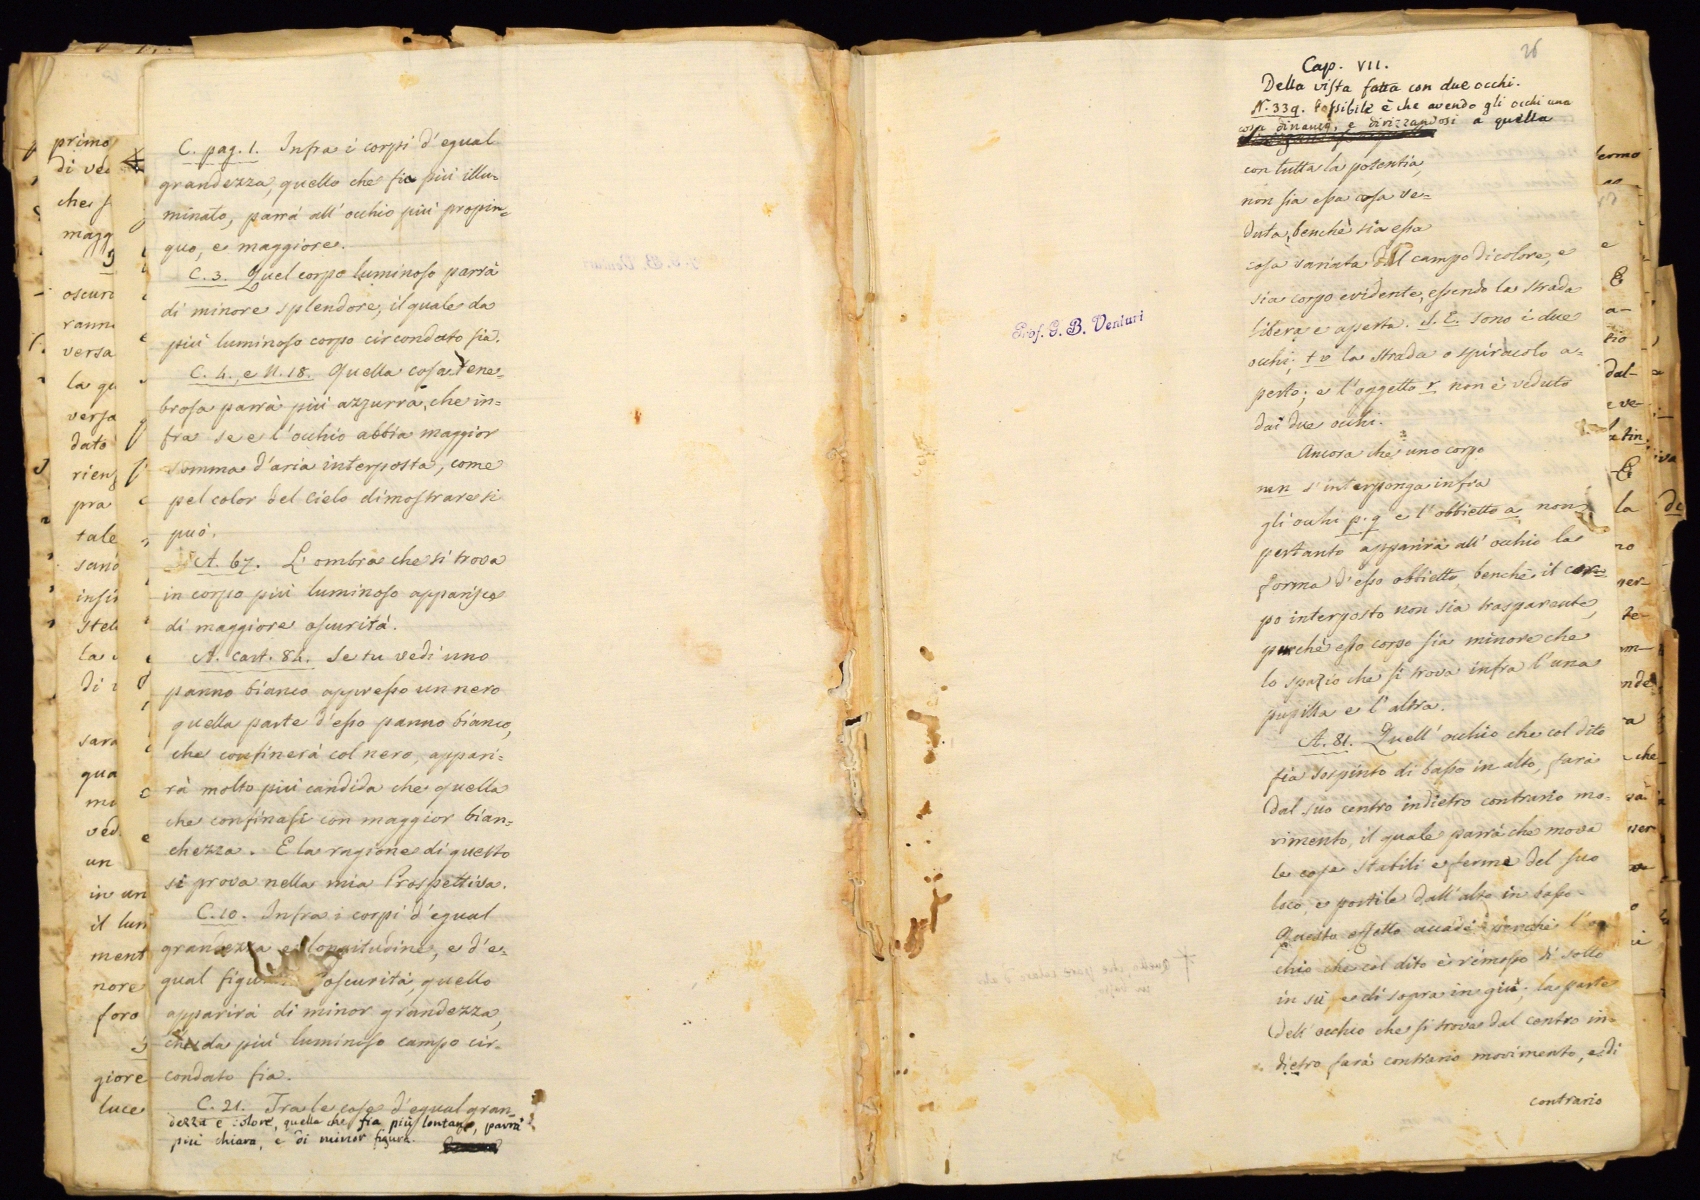 C. pag. 1. Infra i corpi d'egual
grandezza, quello che fia più illu-
minato, parrà all'occhio più propin-
quo, e maggiore.
C. 3. Quel corpo luminoso parrà
di minore splendore, il quale da
più luminoso corpo circondato fia.
C. 4., e N. 18. Quella cosa tene-
brosa parrà più azzurra, che in-
fra se e l'occhio abbia maggior
somma d'aria interposta, come
pel color del Cielo dimostrare si
può.
A. 67. L'ombra che si trova
in corpo più luminoso apparisce
di maggiore oscurità.
A. cart. 84. Se tu vedi uno
panno bianco appresso un nero
quella parte d'esso panno bianco,
che confinerà col nero, appari-
rà molto più candida che quella
che confinasi con maggior bian-
chezza. E la ragione di questo
si prova nella mia Prospettiva.
C. 10. Infra i corpi d'egual
grandezza e longitudine, e d'e-
gual figura oscurità, quello
apparirà di minor grandezza,
che da più luminoso campo cir-
condato fia.
C. 21. Tra le cose d'egual gran-
dezza e colore, quella che fia più lontana, parrà
più chiara, e di minor figura.
primo
di ved
che s
magg
oscuri
ranno
versa
la qu
versa
dato
rien
pra
tale
sano
infi
stel
la
di
sara
qua
mi
ved
un
in un
il lum
ment
nore
foro
giore
luce
Prof. G. B. Venturi
26
Cap. VII.
Della vista fatta con due occhi.
N. 339. Possibile è che avendo gli occhi una
cosa dinanzi, e dirizzandosi a quella
con tutta la potentia,
non sia essa cosa ve-
duta, benchè sia essa
cosa variata dal campo di colore, e
sia corpo evidente, essendo la strada
libera e aperta. S. E. sono i due
occhi; t v la strada o spiracolo a-
perto; e l'oggetto r non è veduto
dai due occhi.
Ancora che uno corpo
nen s'interponga infra
gli occhi p. q e l'obbietto a, non
pertanto apparirà all'occhio la
forma d'esso obbietto, benchè il cor-
po interposto non sia trasparente,
purchè esso corpo sia minore che
lo spazio che si trova infra l'una
pupilla e l'altra.
A. 81. Quell'occhio che col dito
fia sospinto di basso in alto, farà
dal suo centro indietro contrario mo-
vimento, il quale parrà che mova
le cose stabili e ferme del suo
loco, e portile dall'alto in basso.
Questo effetto accade perchè l'oc
chio che col dito è rimosso di sotto
in sù e di sopra in giù; la parte
dell'occhio che si trova dal centro in-
dietro farà contrario movimento, e di
contrario